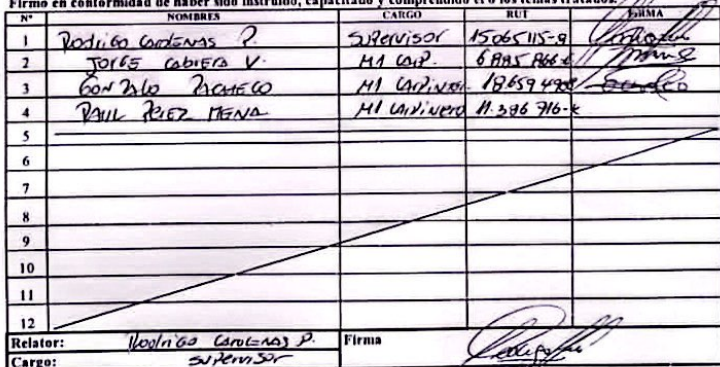 Firmo en conformidad de haber sido instruido, capacitado y comprendido el o los temas tratados.
N° NOMBRES CARGO RUT FIRMA
1 Rodrigo Cardenas P. Supervisor 15065115-9
2 JORGE CABRERA V. M1 CARP.
3 GONZALO PACHECO M1 Carpintero
4 PAUL PEREZ MENA M1 Carpintero 11.386 716-k
5
6
7
8
9
10
11
12
Relator: Rodrigo Cardenas P. Firma
Cargo: Supervisor